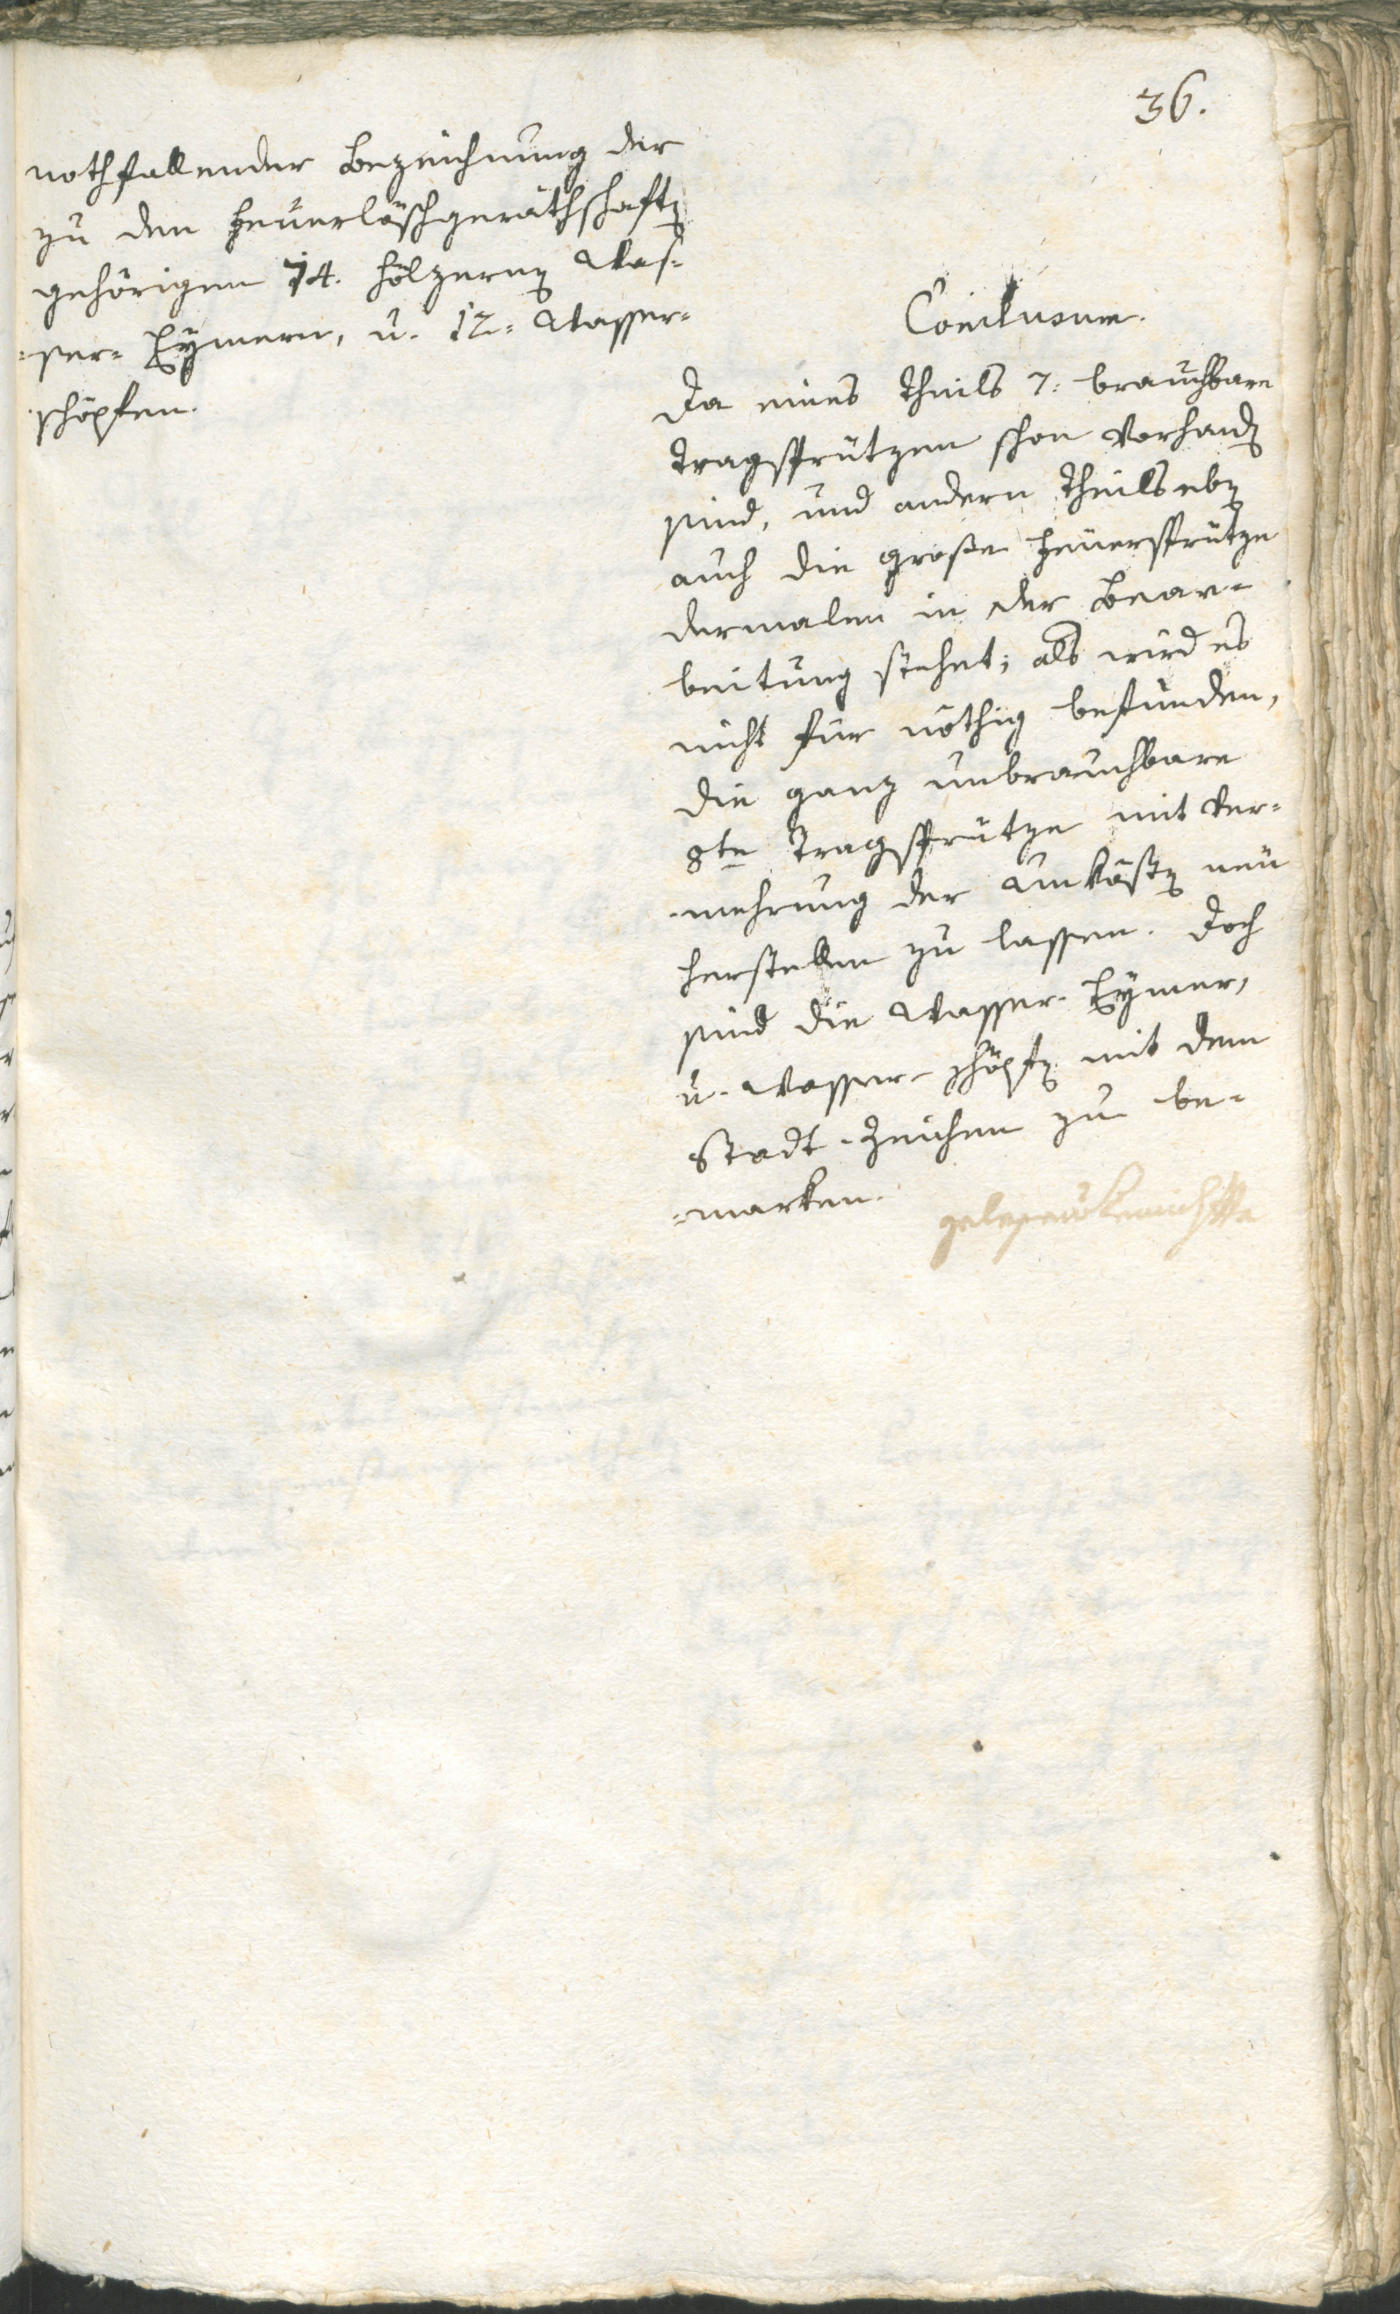 36.
nothfallender Bezeichnung der
zu den Feuerlöschgeräthschaften
gehörigen 74. hölzernen Was-
-ser- Eymern, u. 12= Wasser-
schöpfen.
Conclusum.
Da eines Theils 7: brauchbare
Tragspritzen schon Vorhanden
sind, und andern Theils eben
auch die große Feuerspritze
dermalen in der Bear-
beitung stehet; als wird es
nicht für nöthig befunden,
die ganz unbrauchbare
8te Tragspritze mit Ver-
-mehrung der Unkösten neu
herstellen zu lassen. Doch
sind die Wasser- Eymer,
u. Wasser- schöpfen mit dem
Stadt-Zeichen zu be-
-marken.